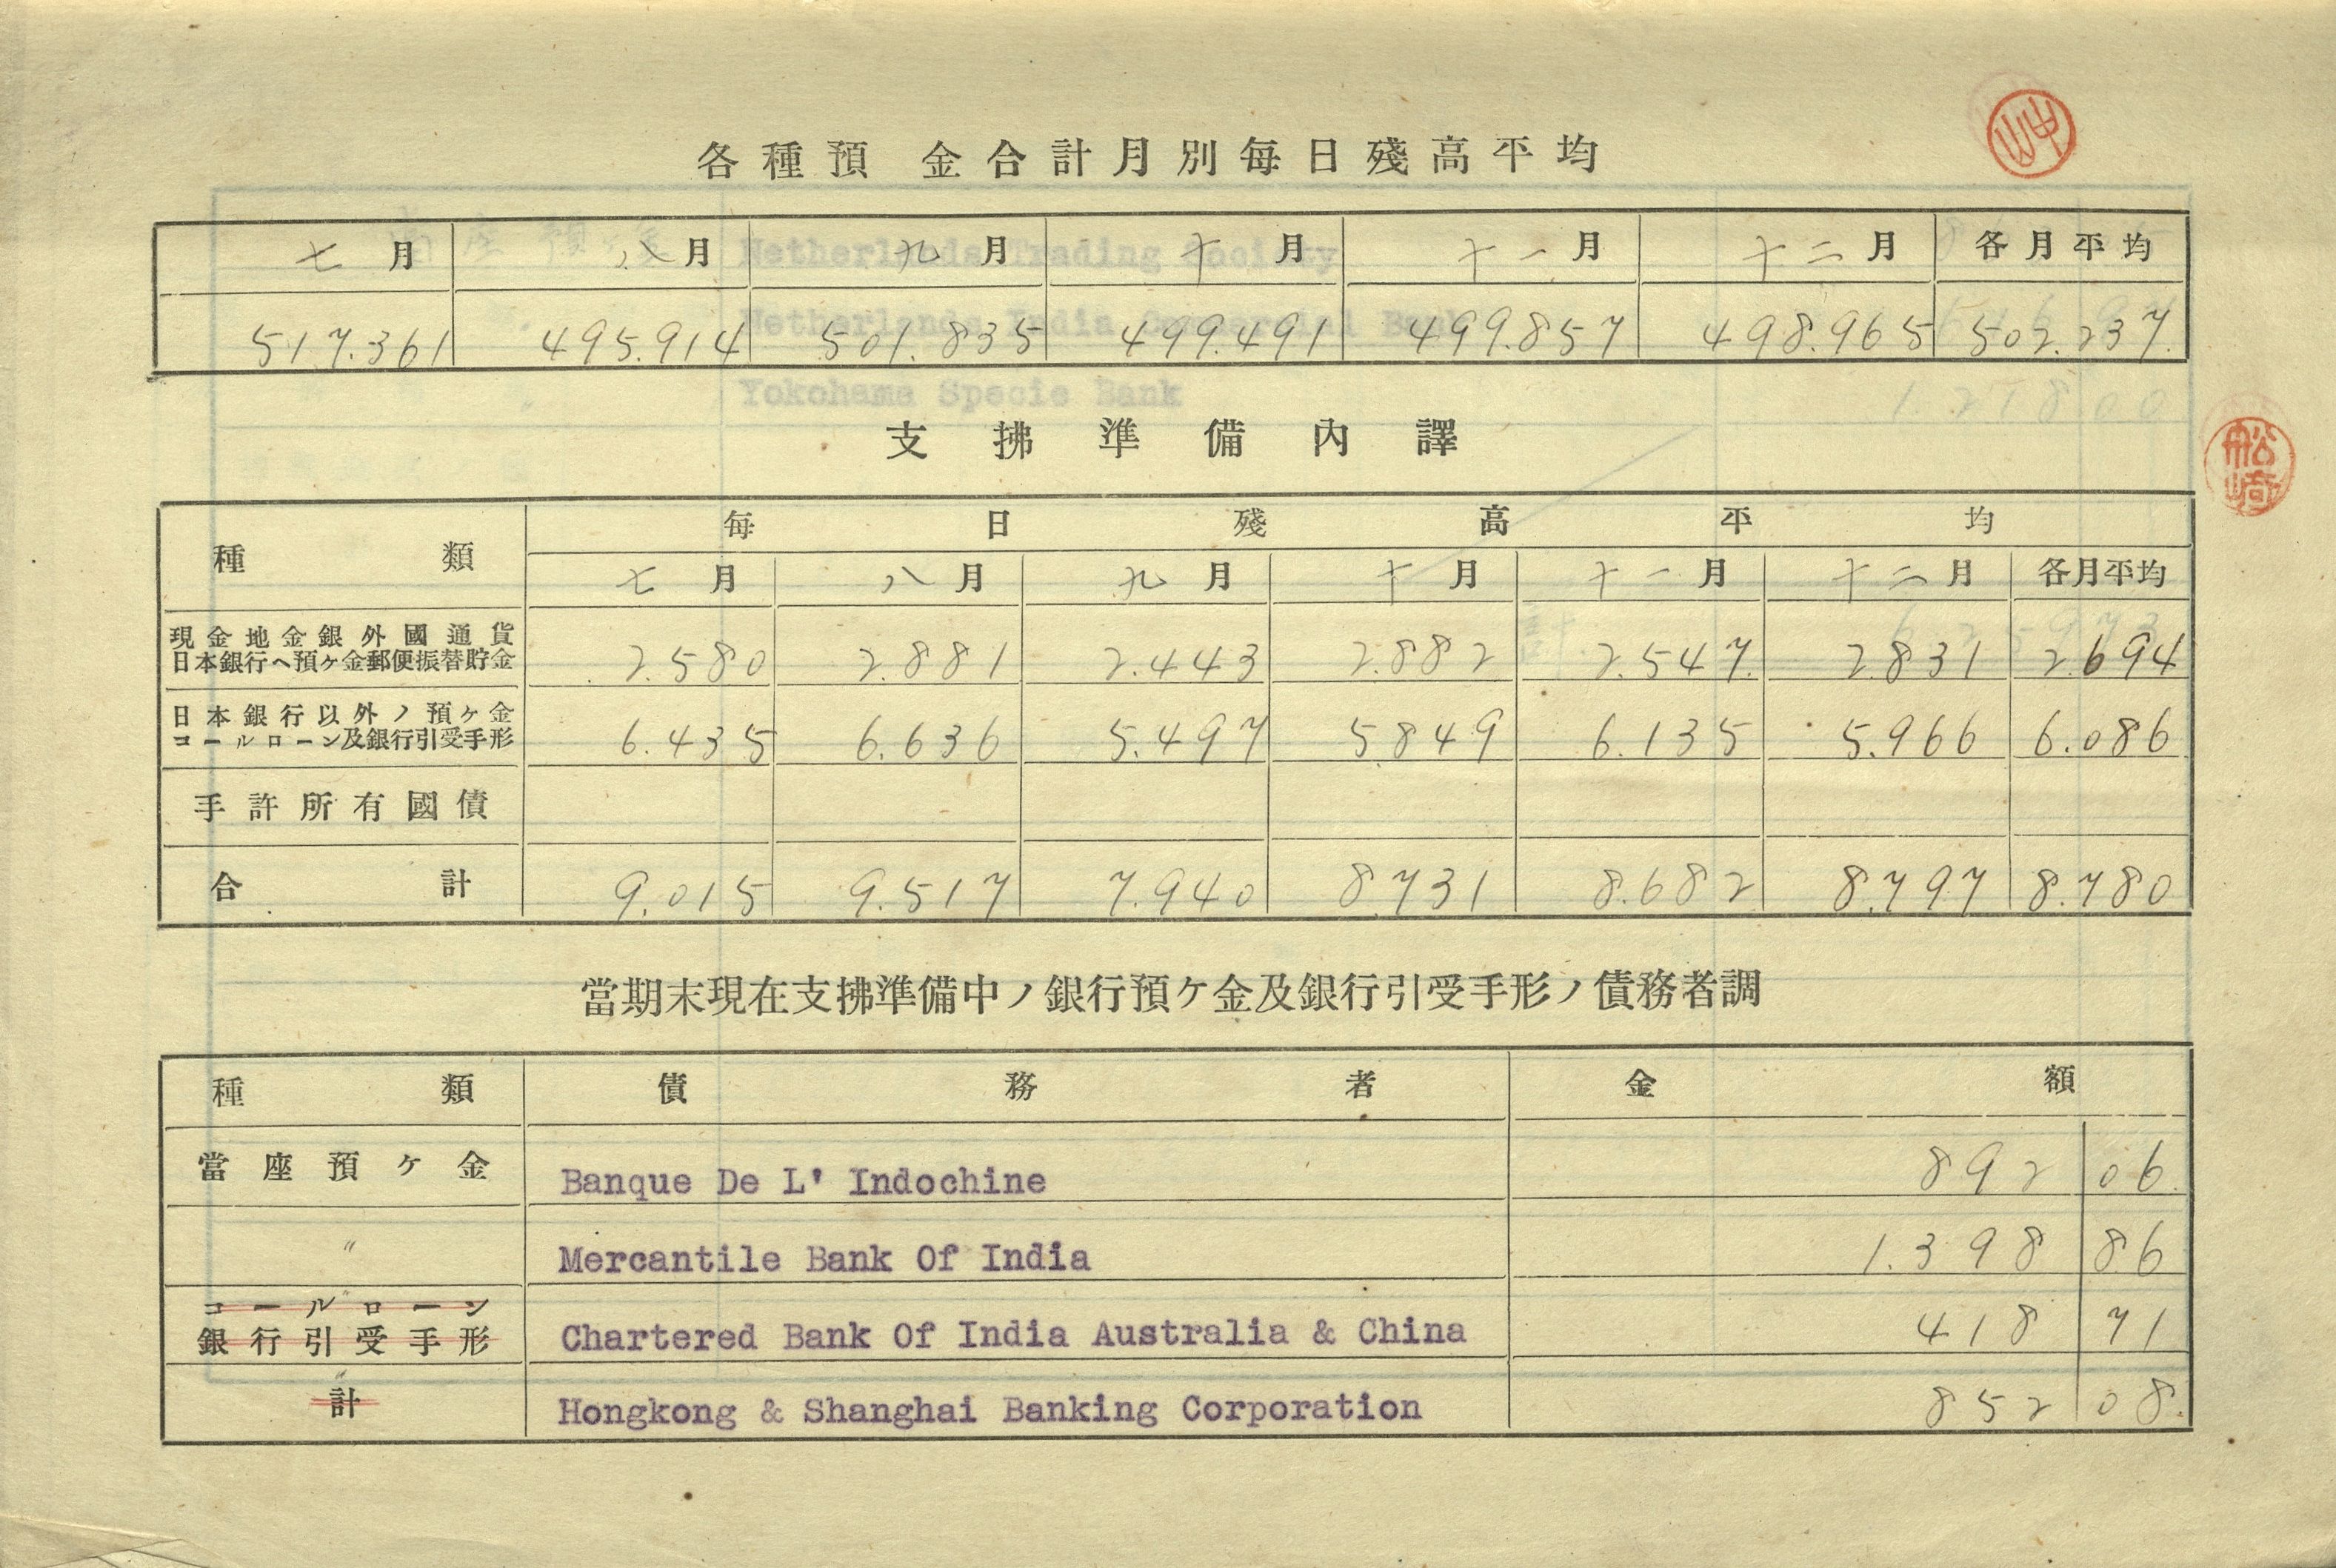 各種預金合計月別每日殘高平均
七月 八月 九月 十月 十一月 十二月 各月平均
517.361 495.914 501.835 499.491 499.857 498.965 502.237
支拂準備內譯
種類 每日殘高平均
七月 八月 九月 十月 十一月 十二月 各月平均
現金地金銀外國通貨
日本銀行ヘ預ケ金郵便振替貯金 2.580 2.881 2.443 2.882 2.547 2.831 2.694
日本銀行以外ノ預ケ金
コールローン及銀行引受手形 6.435 6.636 5.497 5.849 6.135 5.966 6.086
手許所有國債
合計 9.015 9.517 7.940 8.731 8.682 8.797 8.780
當期末現在支拂準備中ノ銀行預ケ金及銀行引受手形ノ債務者調
種類 債務者 金額
當座預ケ金 Banque De L' Indochine 892 06
〃 Mercantile Bank Of India 1.398 86
〃
コールローン
銀行引受手形 Chartered Bank Of India Australia & China 418 71
〃
計 Hongkong & Shanghai Banking Corporation 852 08
Netherlands Trading Society
Netherlands India Commercial Bank
Yokohama Specie Bank